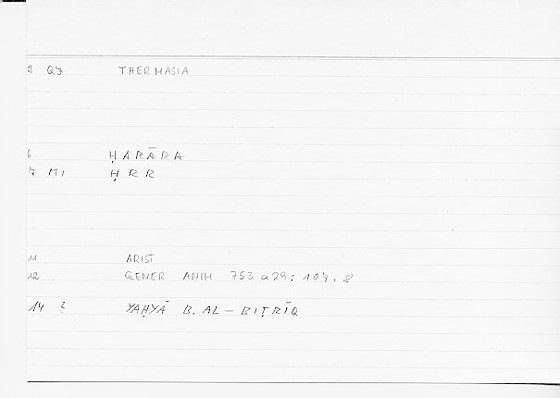 2 Q7 THERMASIA
6 ḤARĀRA
7 M1 ḤRR
11 ARIST
12 GENER ANIM 753 a 29: 107, 8
14 ? YAḤYĀ B. AL-BIṬRĪQ